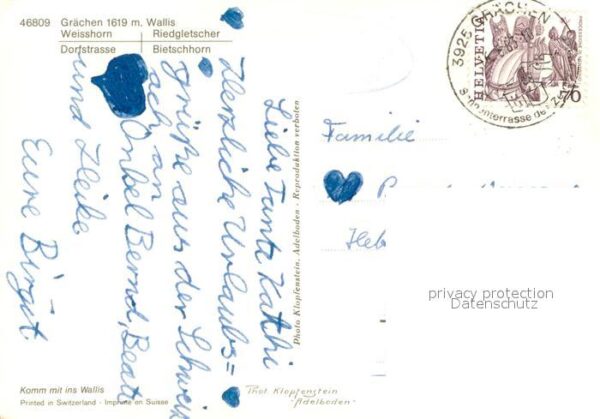 46809 Grächen 1619 m. Wallis
Weisshorn Riedgletscher
Dorfstrasse Bietschhorn
Liebe Tante Kathi
Herzliche Urlaubs=
grüße aus der Schweiz
auch an
Onkel Bernd, Beate
und Heike
Eure Birgit.
Photo Klopfenstein, Adelboden - Reproduktion verboten
3925 GRÄCHEN
HELVETIA
70
Familie
Heb
privacy protection
Datenschutz
Komm mit ins Wallis
Printed in Switzerland - Imprimé en Suisse
Phot. Klopfenstein
Adelboden